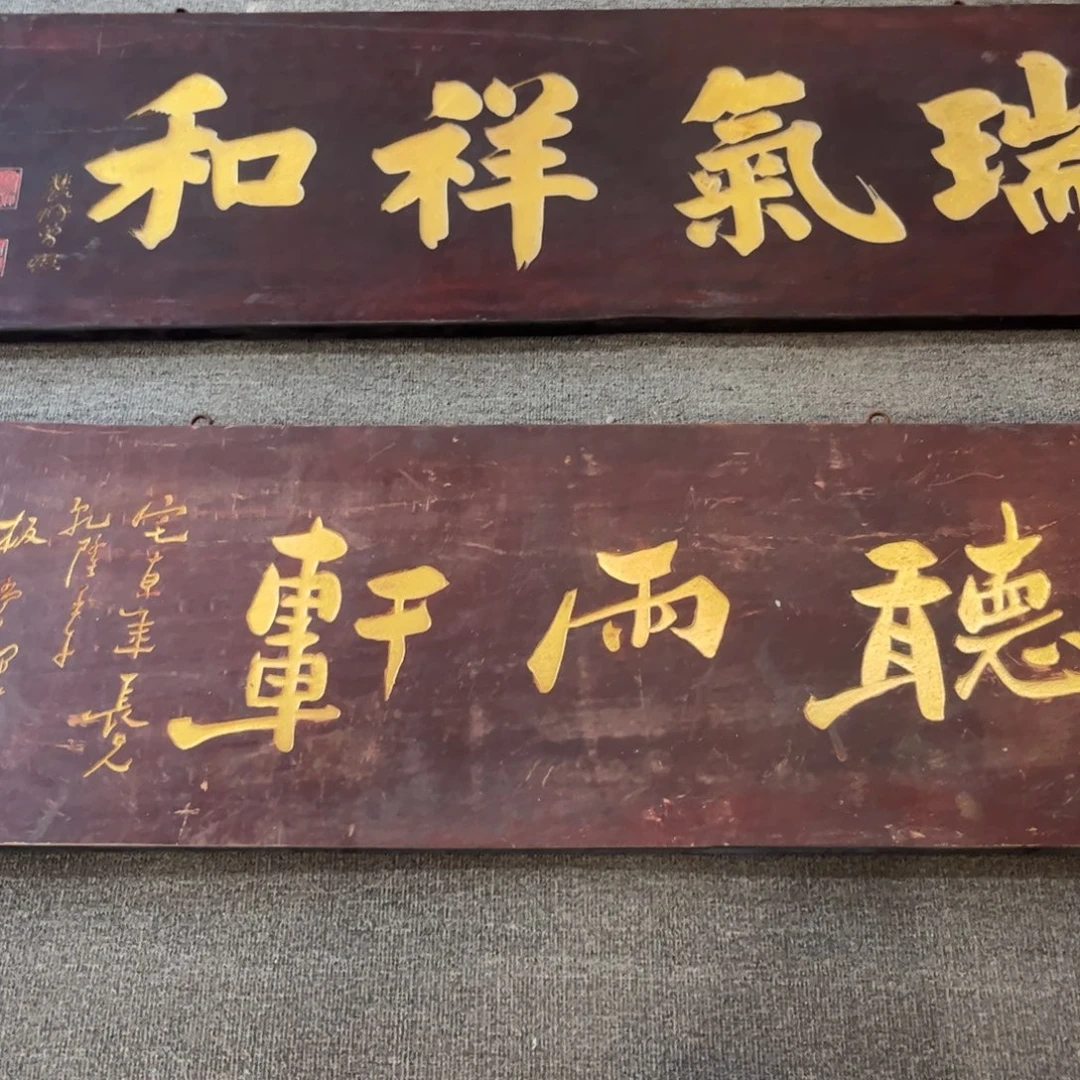 瑞氣祥和
聽雨軒
宅京年長兄
乾隆
板